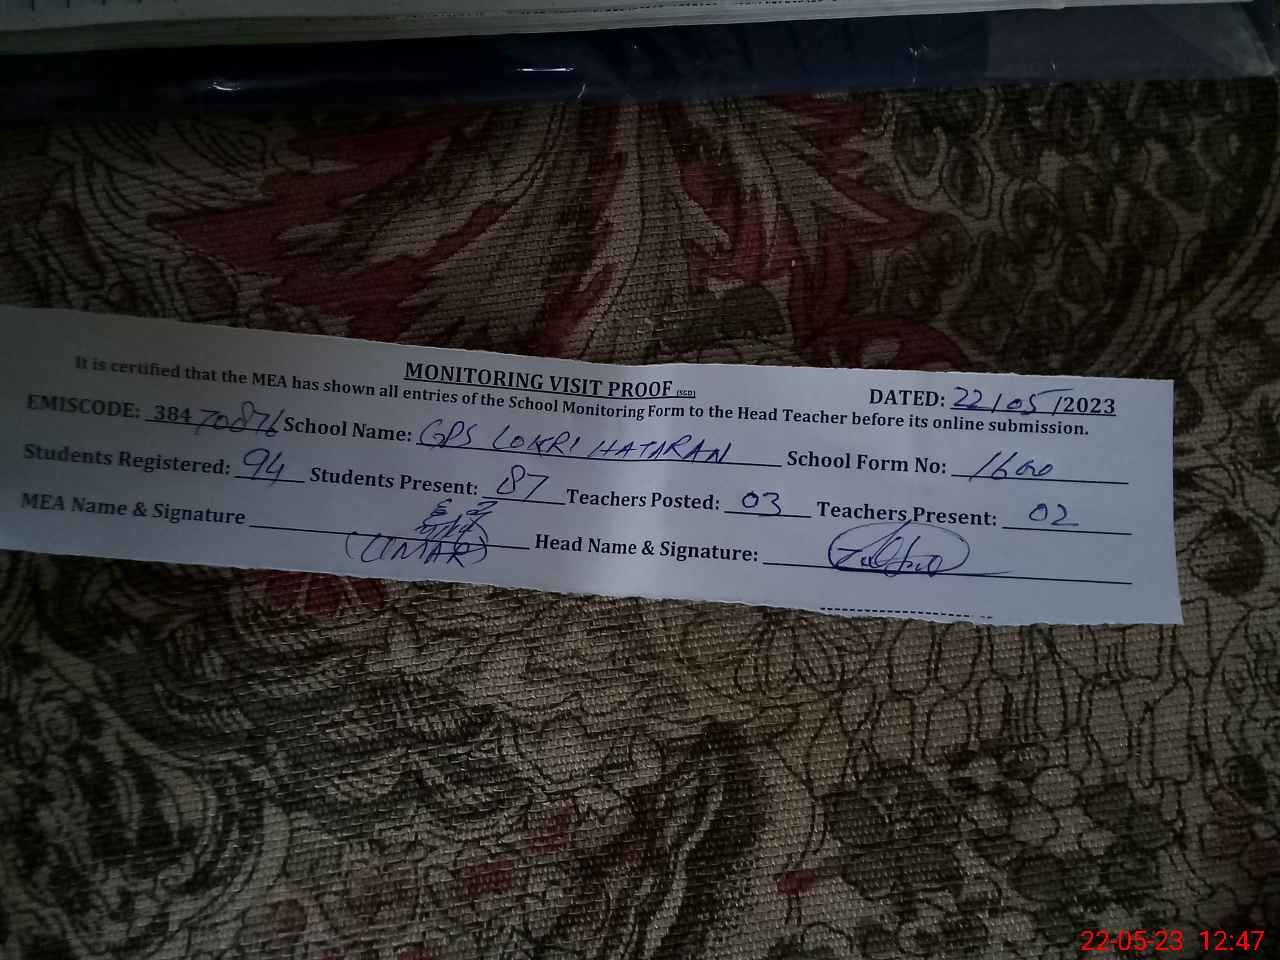 MONITORING VISIT PROOF (SGD) DATED: 22/05/2023
It is certified that the MEA has shown all entries of the School Monitoring Form to the Head Teacher before its online submission.
EMISCODE: 38470876 School Name: GPS LOKRI HATARAN School Form No: 1600
Students Registered: 94 Students Present: 87 Teachers Posted: 03 Teachers Present: 02
MEA Name & Signature (UMAR) Head Name & Signature:
22-05-23 12:47